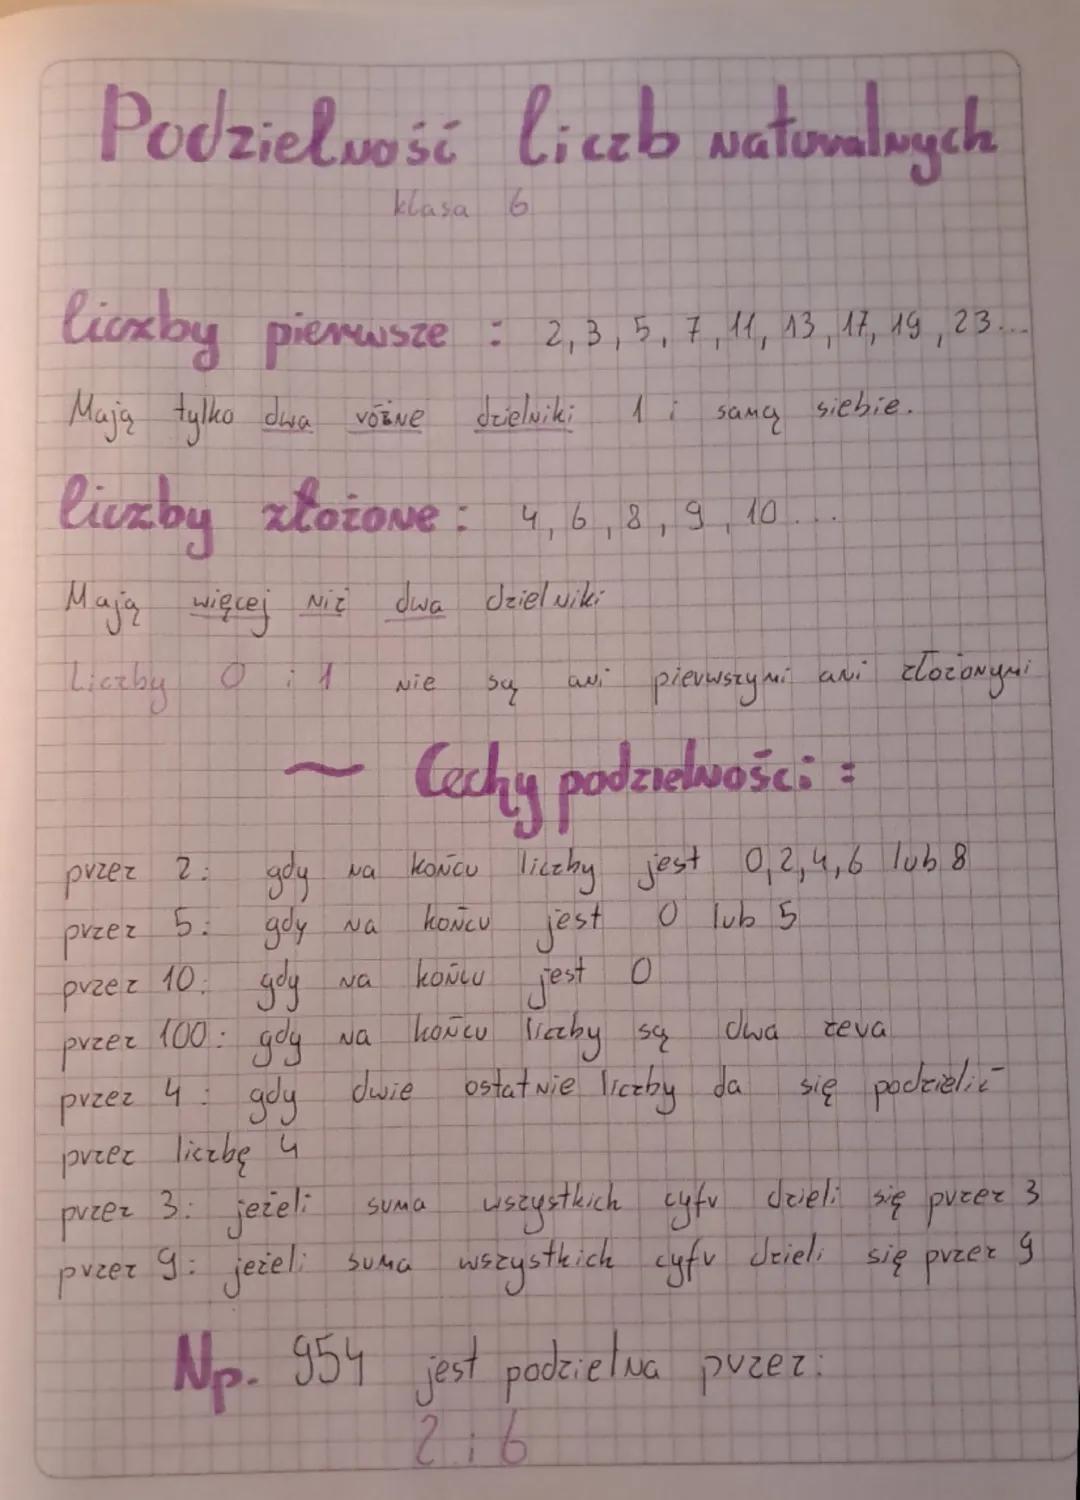 Podzielność liczb naturalnych
klasa 6
liczby pierwsze : 2, 3, 5, 7, 11, 13, 17, 19, 23...
Mają tylko dwa różne dzielniki 1 i samą siebie.
liczby złożone : 4, 6, 8, 9, 10...
Mają więcej niż dwa dzielniki
Liczby 0 i 1 nie są ani pierwszymi ani złożonymi
~ Cechy podzielności :
przez 2: gdy na końcu liczby jest 0,2,4,6 lub 8
przez 5: gdy na końcu jest 0 lub 5
przez 10: gdy na końcu jest 0
przez 100: gdy na końcu liczby są dwa zera
przez 4: gdy dwie ostatnie liczby da się podzielić
przez liczbę 4
przez 3: jeżeli suma wszystkich cyfr dzieli się przez 3
przez 9: jeżeli suma wszystkich cyfr dzieli się przez 9
Np. 954 jest podzielna przez:
2 i 6